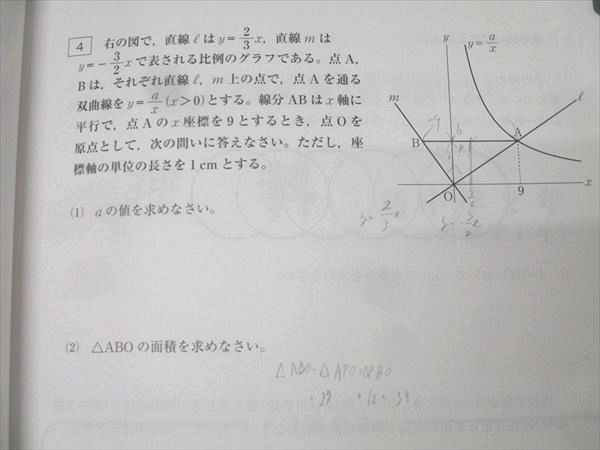 4 右の図で，直線ℓはy=2/3x，直線mは
y=-3/2xで表される比例のグラフである。点A，
Bは，それぞれ直線ℓ，m上の点で，点Aを通る
双曲線をy=a/x(x>0)とする。線分ABはx軸に
平行で，点Aのx座標を9とするとき，点Oを
原点として，次の問いに答えなさい。ただし，座
標軸の単位の長さを1cmとする。
y=a/x
y
m
ℓ
-9
6
B
A
O
9
x
y=2/3x
(1) aの値を求めなさい。
(2) △ABOの面積を求めなさい。
△ABO=△APO+△PBO
=27+12=39